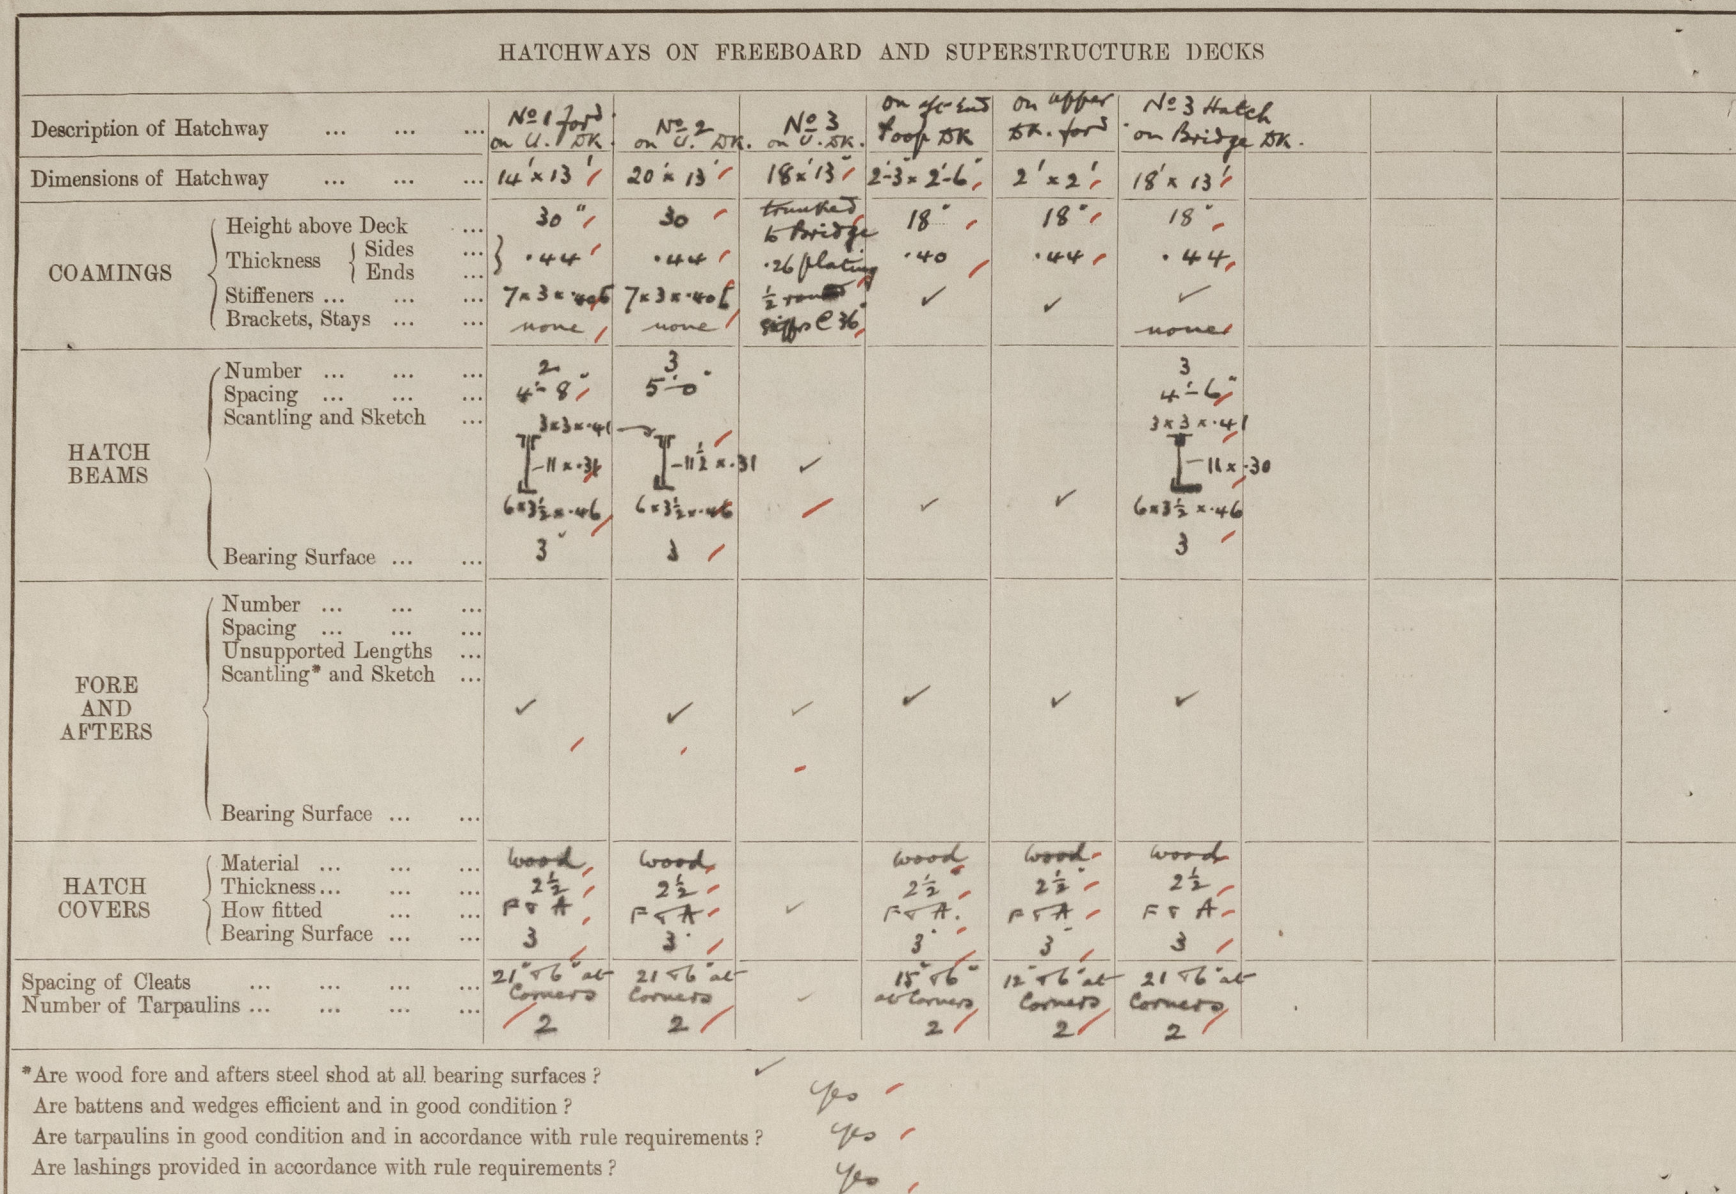 HATCHWAYS ON FREEBOARD AND SUPERSTRUCTURE DECKS
Description of Hatchway ... ... ... No 1 ford on U. DK. No 2 on U. DK. No 3 on U. DK. on aft End Poop DK on upper DK. ford No 3 Hatch on Bridge DK.
Dimensions of Hatchway ... ... ... 14' x 13' 20' x 13' 18' x 13' 2'-3" x 2'-6" 2' x 2' 18' x 13'
COAMINGS
Height above Deck ... 30" 30 trunked to Bridge 18" 18" 18"
Thickness { Sides ... Ends ... } .44 .44 .26 plating .40 .44 .44
Stiffeners ... ... ... 7 x 3 x .40 7 x 3 x .40 ½ ✓ ✓ ✓
Brackets, Stays ... ... none none @ 36" none
HATCH BEAMS
Number ... ... ... 2 3 3
Spacing ... ... ... 4'-8" 5'-0" 4'-6"
Scantling and Sketch ... 3x3x.41 3x3x.41
11 x .31 11½ x .31 ✓ 11 x .30
6x3½x.46 6x3½x.46 ✓ ✓ 6x3½x.46
Bearing Surface ... ... 3" 3 3
FORE AND AFTERS
Number ... ... ...
Spacing ... ... ...
Unsupported Lengths ...
Scantling* and Sketch ...
✓ ✓ ✓ ✓ ✓ ✓
Bearing Surface ... ...
HATCH COVERS
Material ... ... ... wood wood wood wood wood
Thickness... ... ... 2½ 2½ 2½" 2½" 2½
How fitted ... ... F & A F & A ✓ F & A. F & A F & A
Bearing Surface ... ... 3 3" 3" 3" 3
Spacing of Cleats ... ... ... ... 21" & 6" at Corners 21 & 6" at Corners 15" & 6" at Corners 12" & 6" at Corners 21 & 6" at Corners
Number of Tarpaulins ... ... ... ... 2 2 ✓ 2 2 2
*Are wood fore and afters steel shod at all bearing surfaces? ✓
Are battens and wedges efficient and in good condition? yes
Are tarpaulins in good condition and in accordance with rule requirements? yes
Are lashings provided in accordance with rule requirements? yes